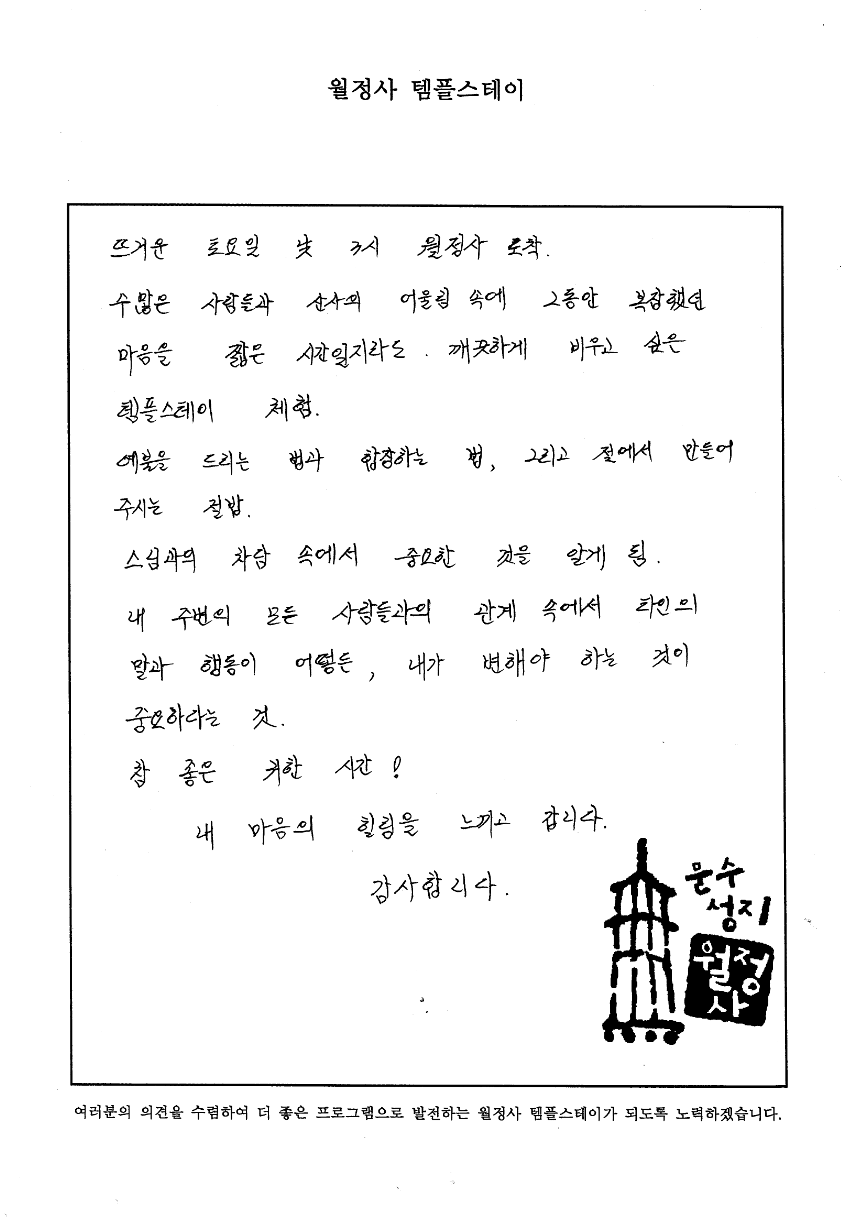 월정사 템플스테이
뜨거운 토요일 낮 3시 월정사 도착.
수많은 사람들과 산사의 어울림 속에 그동안 복잡했던
마음을 짧은 시간일지라도. 깨끗하게 비우고 싶은
템플스테이 체험.
예불을 드리는 법과 합장하는 법, 그리고 절에서 만들어
주시는 절밥.
스님과의 차담 속에서 중요한 것을 알게 됨.
내 주변의 모든 사람들과의 관계 속에서 타인의
말과 행동이 어떻든, 내가 변해야 하는 것이
중요하다는 것.
참 좋은 귀한 시간!
내 마음의 힐링을 느끼고 갑니다.
감사합니다.
문수
성지
월정
사
여러분의 의견을 수렴하여 더 좋은 프로그램으로 발전하는 월정사 템플스테이가 되도록 노력하겠습니다.